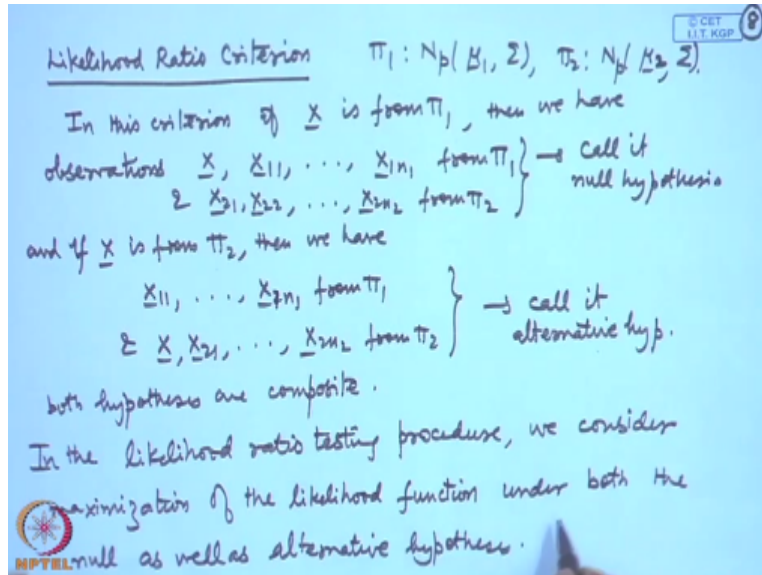 © CET
I.I.T. KGP
8
Likelihood Ratio Criterion π₁ : Nₚ(μ₁, Σ), π₂ : Nₚ(μ₂, Σ).
In this criterion if X is from π₁, then we have
observations X, X₁₁, ..., X₁ₙ₁ from π₁ } → call it
& X₂₁, X₂₂, ..., X₂ₙ₂ from π₂ } null hypothesis
and if X is from π₂, then we have
X₁₁, ..., X₁ₙ₁ from π₁ } → call it
& X, X₂₁, ..., X₂ₙ₂ from π₂ } alternative hyp.
both hypotheses are composite.
In the likelihood ratio testing procedure, we consider
maximization of the likelihood function under both the
null as well as alternative hypotheses.
NPTEL